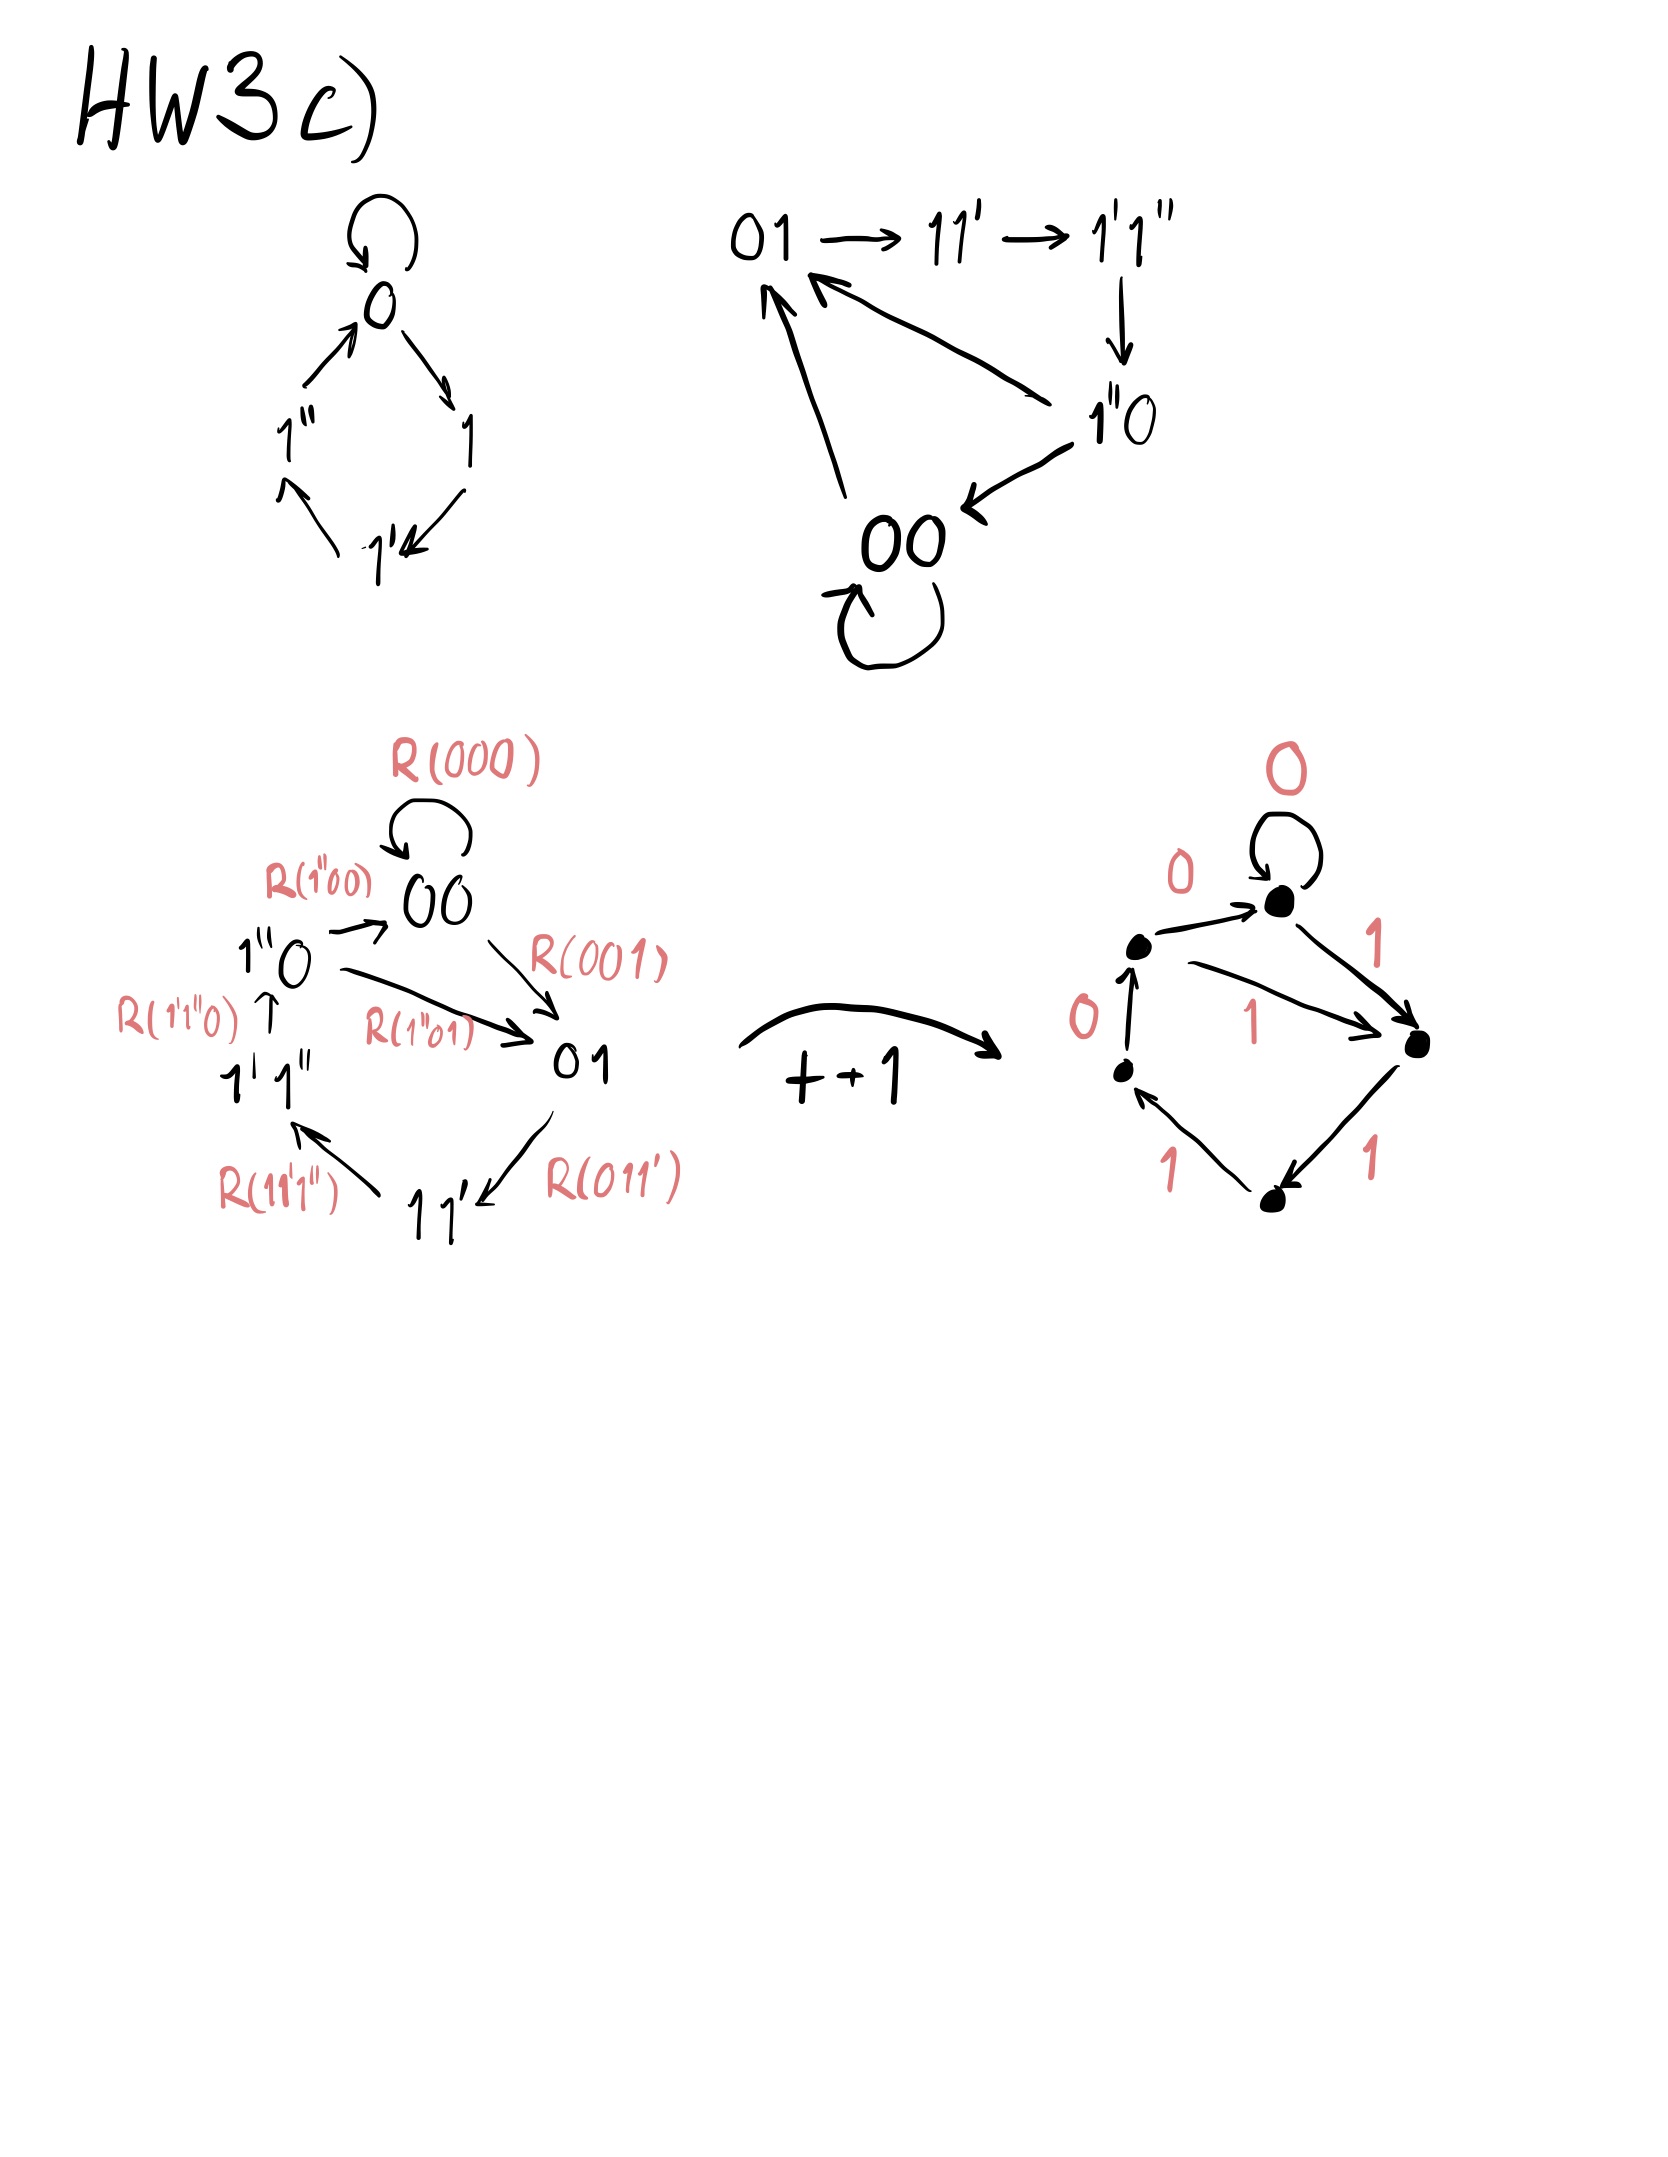 HW3c)
0
1"
1
1'
01 → 11' → 1'1"
1"0
00
R(000)
R(1"00)
00
1"0
R(001)
R(1'1"0)
R(1"01)
1'1"
01
R(11'1")
11'
R(011')
t+1
0
0
1
0
1
1
1